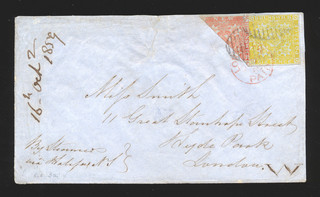 16th Oct 2
1857
PAI
Miss Smith
11 Great Stanhope Street
Hyde Park
London
By Steamer
via Halifax